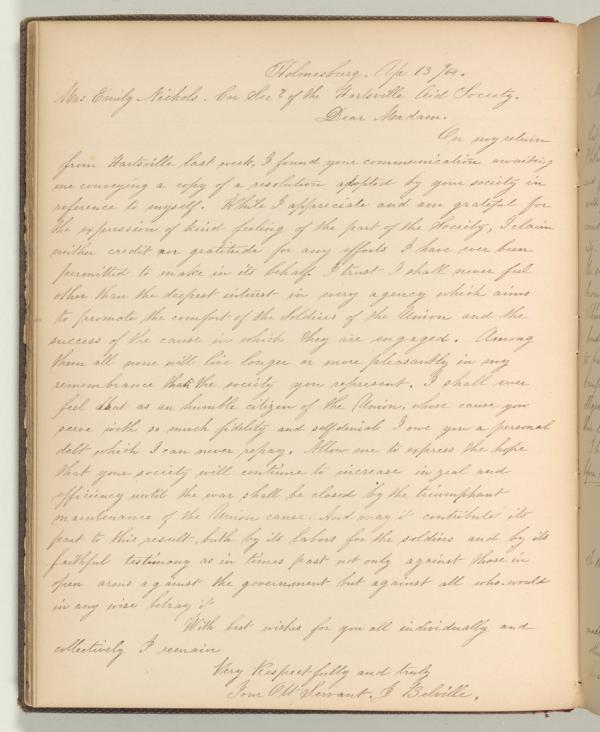 Holmesburg. Ap 13 /64.
Mrs Emily Nichols. Cor Secy of the Hartsville Aid Society.
Dear Madam.
On my return
from Hartsville last week, I found your communication awaiting
me conveying a copy of a resolution adopted by your society in
reference to myself. While I appreciate and am grateful for
the expression of kind feeling of the part of the Society, I claim
neither credit nor gratitude for any efforts I have ever been
permitted to make in its behalf. I trust I shall never feel
other than the deepest interest in every agency which aims
to promote the comfort of the Soldiers of the Union and the
success of the cause in which they are engaged. Among
them all none will live longer or more pleasantly in my
remembrance than the society you represent. I shall ever
feel that as an humble citizen of the Union, whose cause you
serve with so much fidelity and selfdenial I owe you a personal
debt which I can never repay. Allow me to express the hope
that your society will continue to increase in zeal and
efficiency until the war shall be closed by the triumphant
maintenance of the Union cause. And may it contribute its
part to this result, both by its labors for the soldiers and by its
faithful testimony as in times past not only against those in
open arms against the government but against all who would
in any wise betray it.
With best wishes for you all individually and
collectively I remain
Very Respectfully and truly
Your Obt Servant. J Belville.